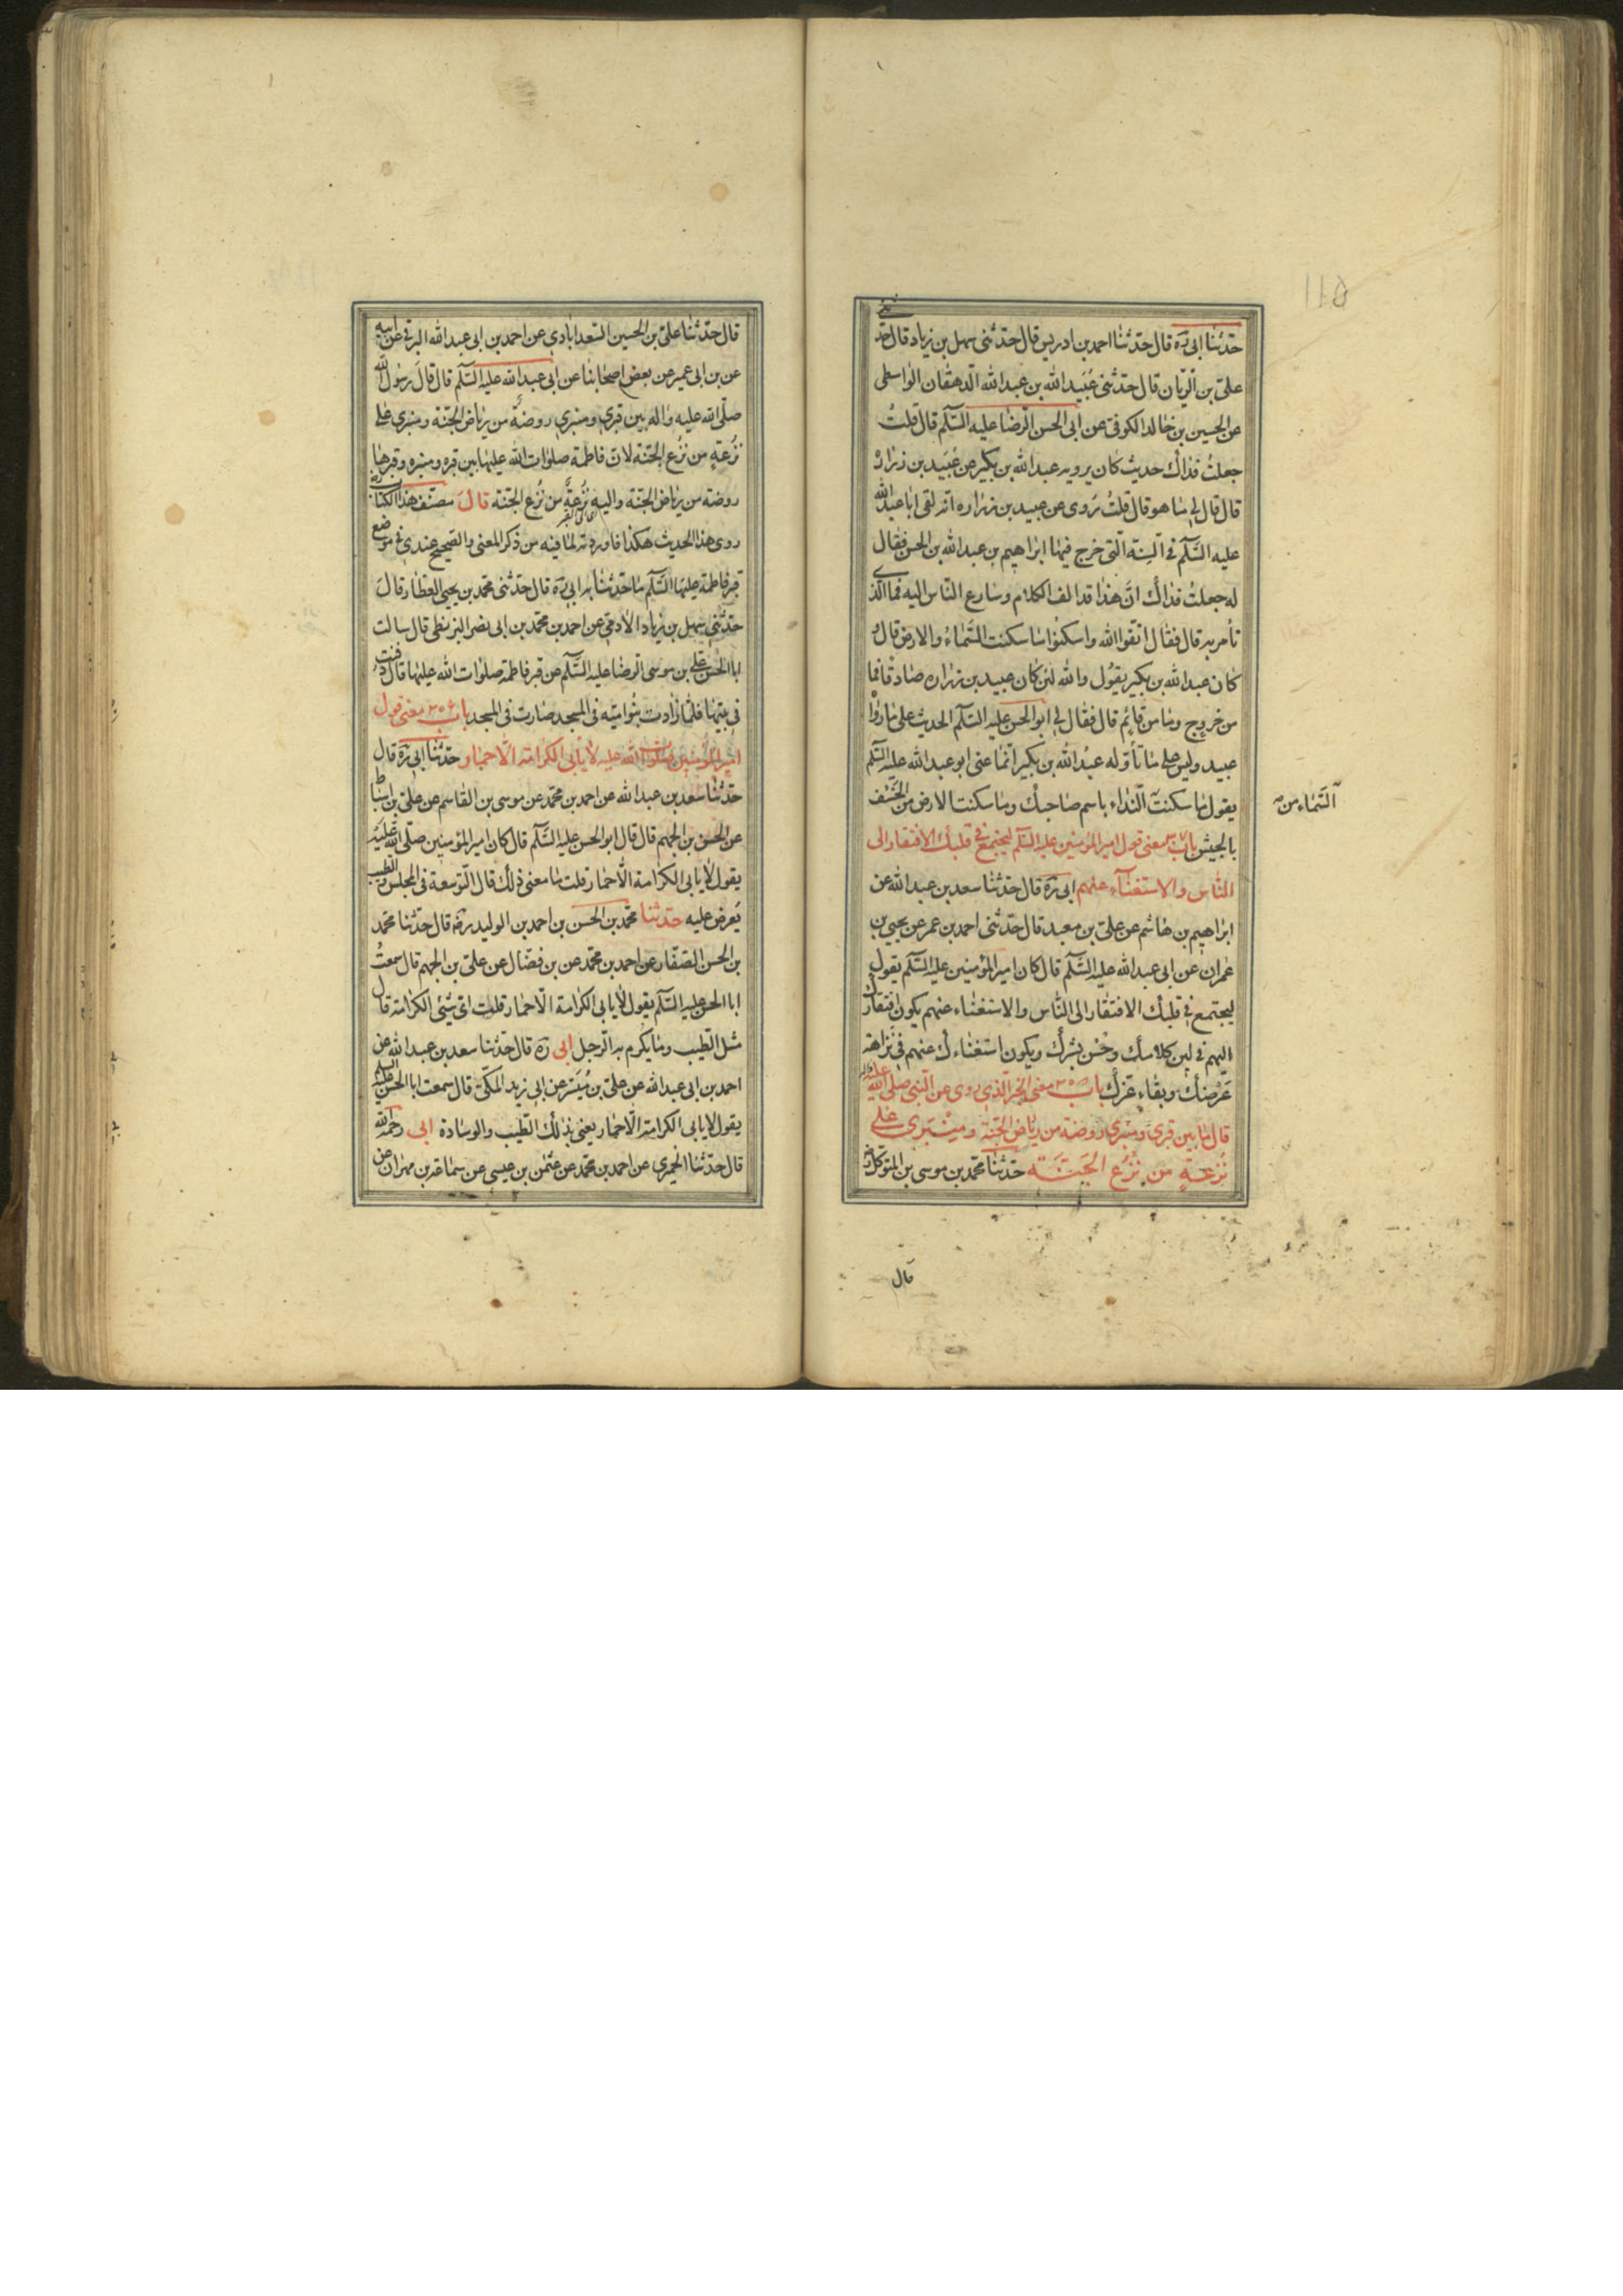 حدثنا ابى ره قال حدثنا احمد بن ادريس قال حدثنى سهل بن زياد قال حدثنى
على بن الريان قال حدثنى عبيد الله بن عبد الله الدهقان الواسطى
عن الحسين بن خالد الكوفى عن ابى الحسن الرضا عليه السلم قال قلت
جعلت فداك حديث كان يرويه عبد الله بن بكير عن عبيد بن زراره
قال قال لى ما هو قال قلت روى عن عبيد بن زراره انه لقى ابا عبد الله
عليه السلم فى السنه التى خرج فيها ابراهيم بن عبد الله بن الحسن فقال
له جعلت فداك ان هذا قد الف الكلام وسارع الناس اليه فما الذى
تأمر به قال فقال اتقوا الله واسكنوا ما سكنت السماء والارض قال و
كان عبد الله بن بكير يقول والله لئن كان عبيد بن زراره صادقا فما
من خروج وما من قائم قال فقال لى ابو الحسن عليه السلم الحديث على ما رواه
عبيد وليس على ما تأوله عبد الله بن بكير انما عنى ابو عبد الله عليه السلم
يقول ما سكنت النداء باسم صاحبك وما سكنت الارض من الخسف
السماء من
بالجيش باب معنى قول امير المؤمنين عليه السلم ليجتمع فى قلبك الافتقار الى
الناس والاستغنآء عنهم ابى ره قال حدثنا سعد بن عبد الله عن
ابراهيم بن هاشم عن على بن معبد قال حدثنى احمد بن عمر عن يحيى بن
عمران عن ابى عبد الله عليه السلم قال كان امير المؤمنين عليه السلم يقول
ليجتمع فى قلبك الافتقار الى الناس والاستغناء عنهم يكون افتقارك
اليهم فى لين كلامك وحسن بشرك ويكون استغناءك عنهم فى نزاهة
عرضك وبقاء عزك باب ٣٥٥ معنى الخبر الذى روى عن النبى صلى الله عليه واله
قال ما بين قبرى ومنبرى روضة من رياض الجنة ومنبرى على
نزعة من نزع الجنة حدثنا محمد بن موسى بن المتوكل ره
قال
قال حدثنا على بن الحسين السعدابادى عن احمد بن ابى عبد الله البرقى عن ابيه
عن بن ابى عمير عن بعض اصحابنا عن ابى عبد الله عليه السلم قال قال رسول الله
صلى الله عليه واله بين قبرى ومنبرى روضة من رياض الجنة ومنبرى على
نزعة من نزع الجنة لان فاطمة صلوات الله عليها بين قبره ومنبره وقبرها
روضة من رياض الجنة واليه نزعة من نزع الجنة قال مصنف هذا الكتاب ره
روى هذا الحديث هكذا فاوردته لما فيه من ذكر المعنى والصحيح عندى فى موضع
قبر فاطمة عليها السلم ما حدثنا به ابى ره قال حدثنى محمد بن يحيى العطار قال
حدثنى سهل بن زياد الادمى عن احمد بن محمد بن ابى نصر البزنطى قال سالت
ابا الحسن على بن موسى الرضا عليه السلم عن قبر فاطمة صلوات الله عليها قال دفنت
فى بيتها فلما زادت بنو اميه فى المسجد صارت فى المسجد باب ٣٥٦ معنى قول
امير المؤمنين صلوات الله عليه لا يأبى الكرامة الا حمار حدثنا ابى ره قال
حدثنا سعد بن عبد الله عن احمد بن محمد عن موسى بن القاسم عن على بن اسباط
عن الحسن بن الجهم قال قال ابو الحسن عليه السلم قال كان امير المؤمنين صلى الله عليه
يقول لا يابى الكرامة الا حمار قلت ما معنى ذلك قال التوسعة فى المجلس والطيب
يعرض عليه حدثنا محمد بن الحسن بن احمد بن الوليد ره قال حدثنا محمد
بن الحسن الصفار عن احمد بن محمد عن بن فضال عن على بن الجهم قال سمعت
ابا الحسن عليه السلم يقول لا يابى الكرامة الا حمار قلت اى شىء الكرامة قال
مثل الطيب وما يكرم به الرجل ابى ره قال حدثنا سعد بن عبد الله عن
احمد بن ابى عبد الله عن على بن ميسر عن ابى زيد المكى قال سمعت ابا الحسن عليه السلم
يقول لا يابى الكرامة الا حمار يعنى بذلك الطيب والوسادة ابى رحمه الله
قال حدثنا الحميرى عن احمد بن محمد عن عثمن بن عيسى عن سماعة بن مهران عن